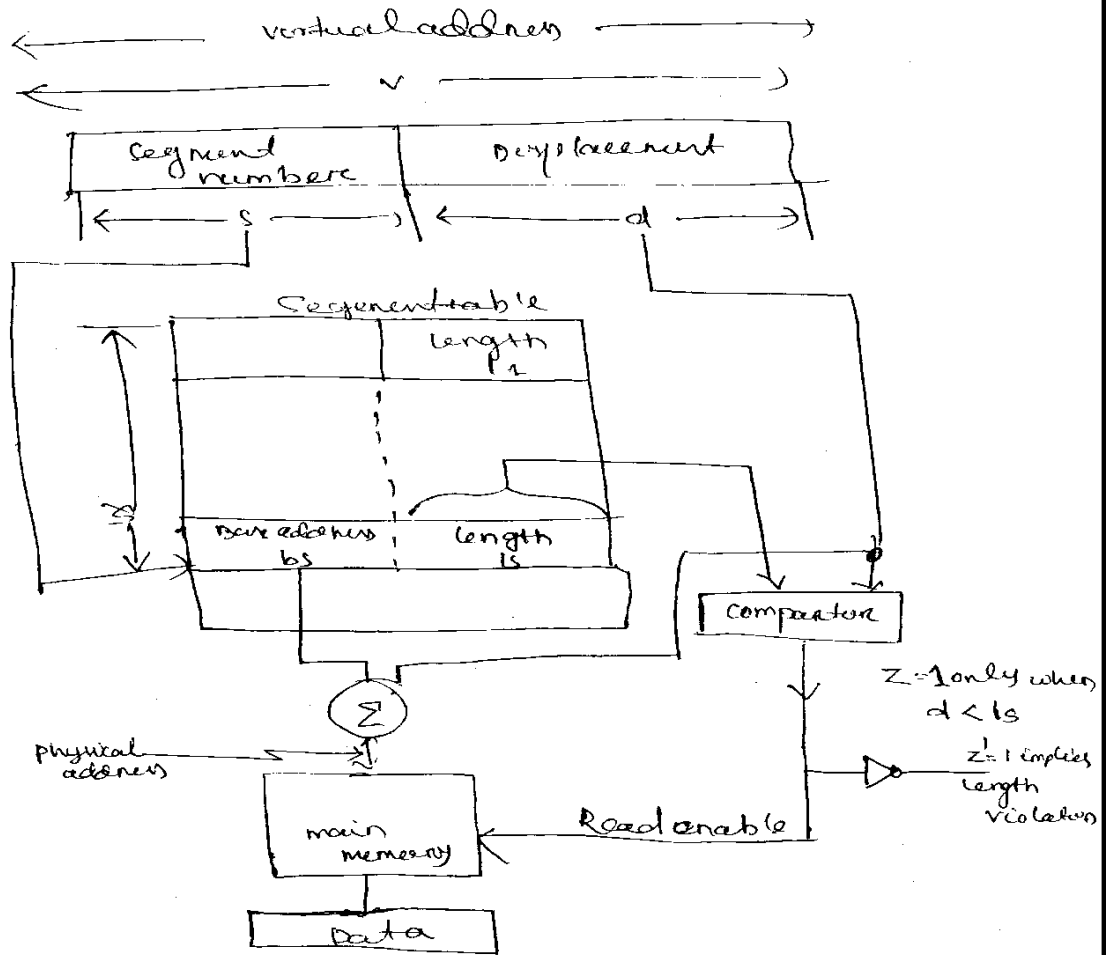 virtual address
v
Segment
number
Displacement
s
d
Segment table
length
l1
s
Base address
bs
length
ls
comparator
Σ
Z=1 only when
d < ls
z'=1 implies
length
violation
physical
address
Read enable
main
memory
Data